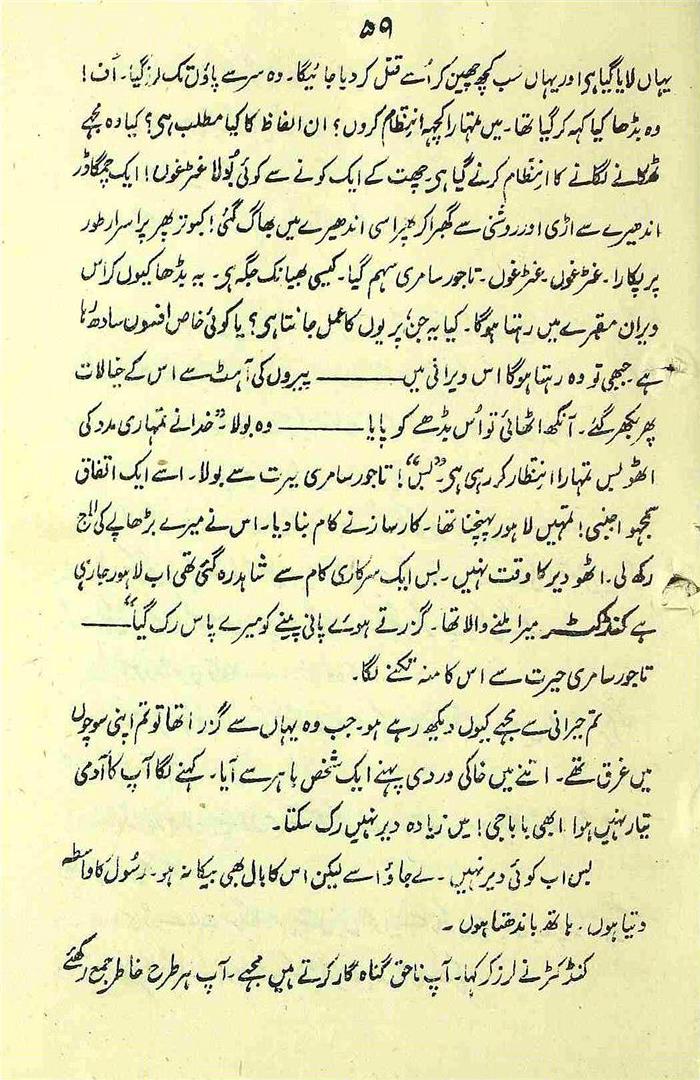 ۵۹
یہاں لایا گیا ہی اور یہاں سب کچھ چھین کر اُسے قتل کر دیا جائیگا۔ وہ سر سے پاؤں تک لرز گیا۔ اُف!
وہ بڈھا کیا کہہ کر گیا تھا۔ میں تمہارا کچھہ انتظام کروں؟ ان الفاظ کا کیا مطلب ہی؟ کیا وہ مجہے
ٹھکانے لگانے کا انتظام کرنے گیا ہی۔ چھت کے ایک کونے سے کوئی بولا غٹرغوں! ایک چمگادڑ
اندھیرے سے اڑی اور روشنی سے گھبرا کر پھر اسی اندھیرے میں بھاگ گئی! کبوتر پھر پراسرار طور
پر پکارا۔ غٹرغوں۔ غٹرغوں۔ تاجور سامری سہم گیا۔ کیسی بھیانک جگہ ہی۔ یہ بڈھا کیوں کر اس
ویران مقبرے میں رہتا ہوگا۔ کیا یہ جن پریوں کا عمل جانتا ہی؟ یا کوئی خاص افسوں سادھ رہا
ہے جبھی تو وہ رہتا ہوگا اس ویرانی میں ——— پیروں کی آہٹ سے اس کے خیالات
پھر بکھر گئے۔ آنکھ اٹھائی تو اُس بڈھے کو پایا ——— وہ بولا۔ ”خدا نے تمہاری مدد کی
اٹھو بس تمہارا انتظار کر رہی ہی۔ ”بس“! تاجور سامری حیرت سے بولا۔ اسے ایک اتفاق
سمجھو اجنبی! تمہیں لاہور پہنچنا تھا۔ کارساز نے کام بنا دیا۔ اس نے میرے بڑھاپے کی لاج
رکھ لی۔ اٹھو دیر کا وقت نہیں۔ بس ایک سرکاری کام سے شاہدرہ گئی تھی اب لاہور جا رہی
ہے کنڈکٹر میرا ملنے والا تھا۔ گزرتے ہوئے پانی پینے کو میرے پاس رک گیا“ ———
تاجور سامری حیرت سے اس کا منہ تکنے لگا۔
تم حیرانی سے مجہے کیوں دیکھ رہے ہو۔ جب وہ یہاں سے گزرا تھا تو تم اپنی سوچوں
میں غرق تھے۔ اتنے میں خاکی وردی پہنے ایک شخص باہر سے آیا۔ کہنے لگا آپ کا آدمی
تیار نہیں ہوا ابھی بابا جی! میں زیادہ دیر نہیں رک سکتا۔
بس اب کوئی دیر نہیں۔ لے جاؤ اسے لیکن اس کا بال بھی بیکا نہ ہو۔ رسُول کا واسطہ
دیتا ہوں۔ ہاتھ باندھتا ہوں۔
کنڈکٹر نے لرز کر کہا۔ آپ ناحق گناہ گار کرتے ہیں مجہے۔ آپ ہر طرح خاطر جمع رکھئے